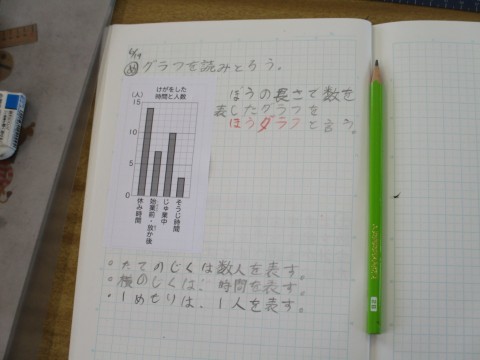 6/14
め グラフを読みとろう。
けがをした
時間と人数
(人)
15
10
5
0
休み時間
始業前・放か後
じゅ業中
そうじ時間
ぼうの長さで数を
表したグラフを
ぼうグラフと言う。
・たてのじくは数人を表す。
・横のじくは、時間を表す。
・1めもりは、1人を表す。